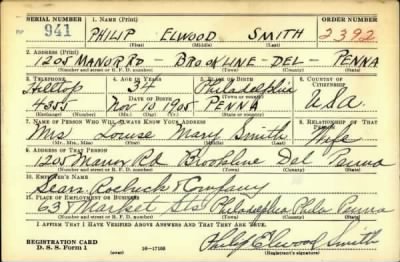 SERIAL NUMBER 1. NAME (Print) ORDER NUMBER
941 PHILIP ELWOOD SMITH 2392
(First) (Middle) (Last)
2. ADDRESS (Print)
1205 MANOR RD - BROOKLINE - DEL - PENNA
(Number and street or R. F. D. number) (Town) (County) (State)
3. TELEPHONE 4. AGE IN YEARS 5. PLACE OF BIRTH 6. COUNTRY OF CITIZENSHIP
Hilltop 34 Philadelphia
DATE OF BIRTH
4355 Nov. 13 1905 PENNA USA
(Exchange) (Number) (Mo.) (Day) (Yr.) (State or country)
7. NAME OF PERSON WHO WILL ALWAYS KNOW YOUR ADDRESS 8. RELATIONSHIP OF THAT PERSON
Mrs Louise Mary Smith Wife
(Mr., Mrs., Miss) (First) (Middle) (Last)
9. ADDRESS OF THAT PERSON
1205 Manor Rd Brookline Del Penna
(Number and street or R. F. D. number) (Town) (County) (State)
10. EMPLOYER'S NAME
Sears Roebuck & Company
11. PLACE OF EMPLOYMENT OR BUSINESS
Market Sts Philadelphia Phila Penna
(Number and street or R. F. D. number) (Town) (County) (State)
I AFFIRM THAT I HAVE VERIFIED ABOVE ANSWERS AND THAT THEY ARE TRUE.
REGISTRATION CARD
D. S. S. Form 1 (over) 16-17105 Philip Elwood Smith
(Registrant's signature)